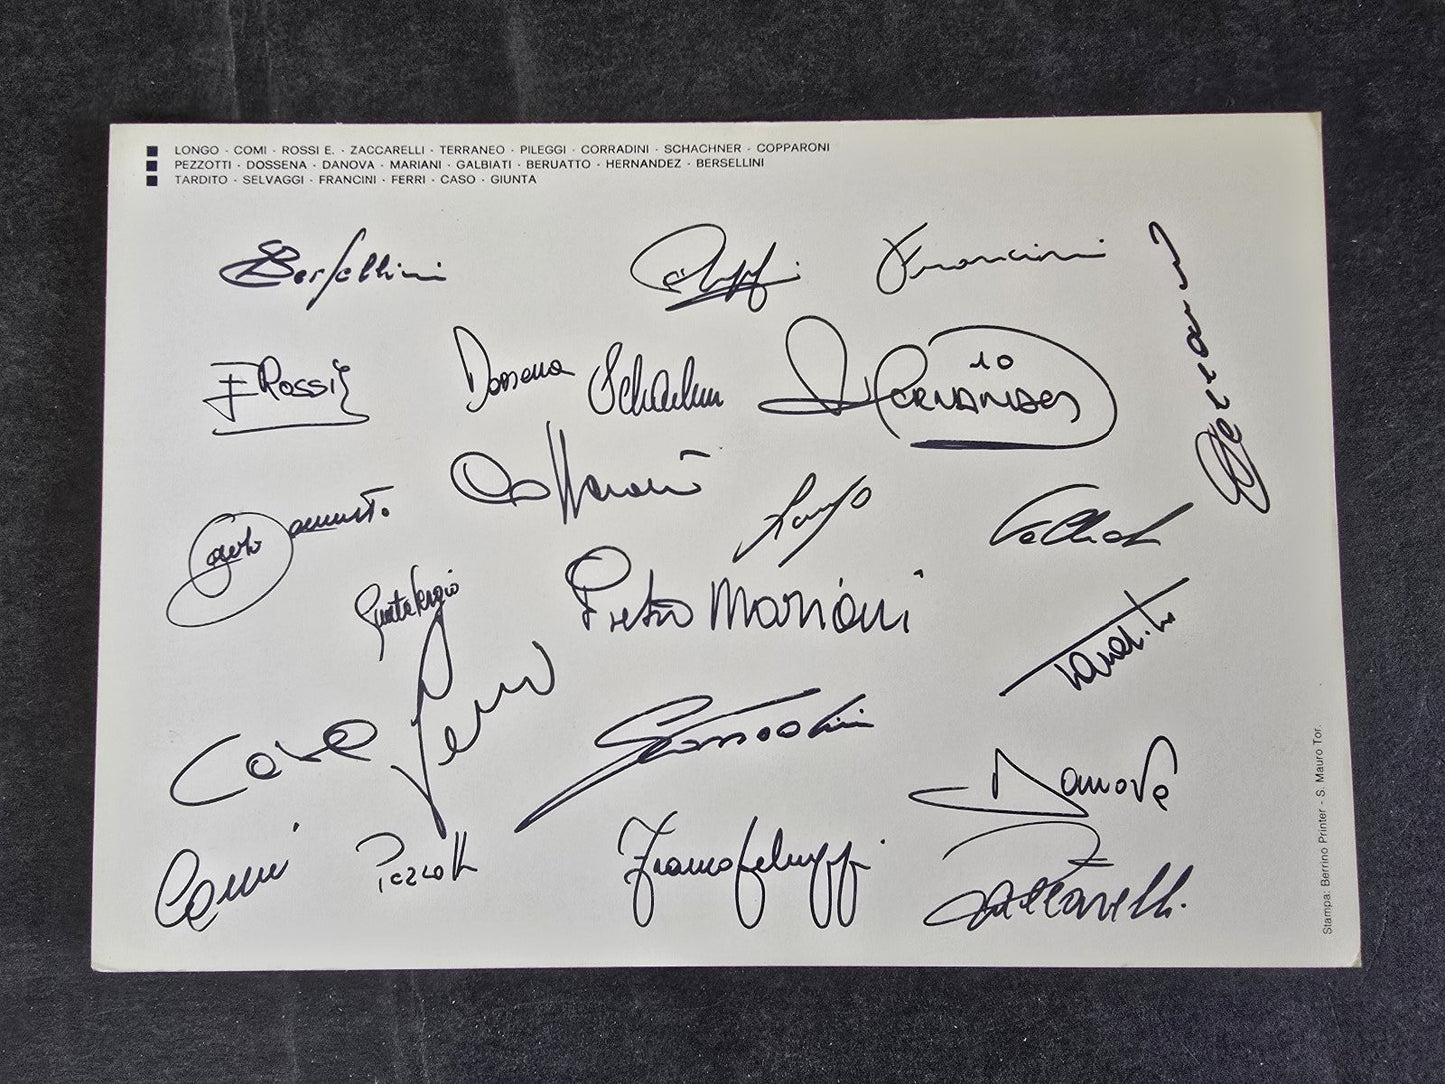 LONGO · COMI · ROSSI E. · ZACCARELLI · TERRANEO · PILEGGI · CORRADINI · SCHACHNER · COPPARONI
PEZZOTTI · DOSSENA · DANOVA · MARIANI · GALBIATI · BERUATTO · HERNANDEZ · BERSELLINI
TARDITO · SELVAGGI · FRANCINI · FERRI · CASO · GIUNTA
Bersellini
Francini
E Rossi
Dossena
Schachner
10
Hernandes
Longo
Pietro Mariani
Tardito
Caso
Ferri
Danova
Comi
Pezzotti
Franco Selvaggi
Zaccarelli
Stampa: Berrino Printer - S. Mauro Tor.